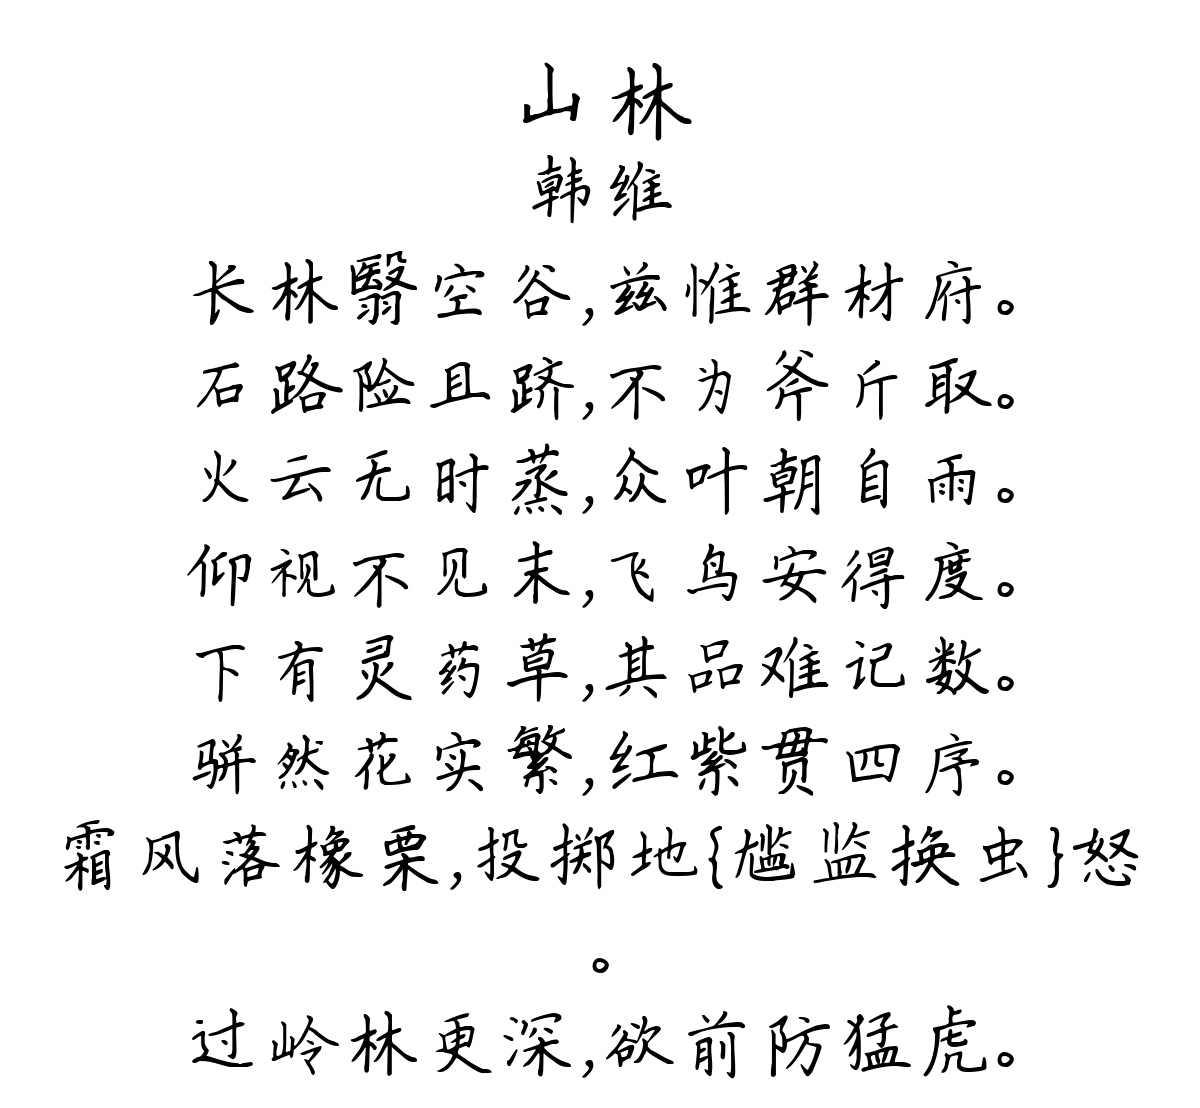 山林
韩维
长林翳空谷,兹惟群材府。
石路险且跻,不为斧斤取。
火云无时蒸,众叶朝自雨。
仰视不见末,飞鸟安得度。
下有灵药草,其品难记数。
骈然花实繁,红紫贯四序。
霜风落橡栗,投掷地{尴监换虫}怒
。
过岭林更深,欲前防猛虎。